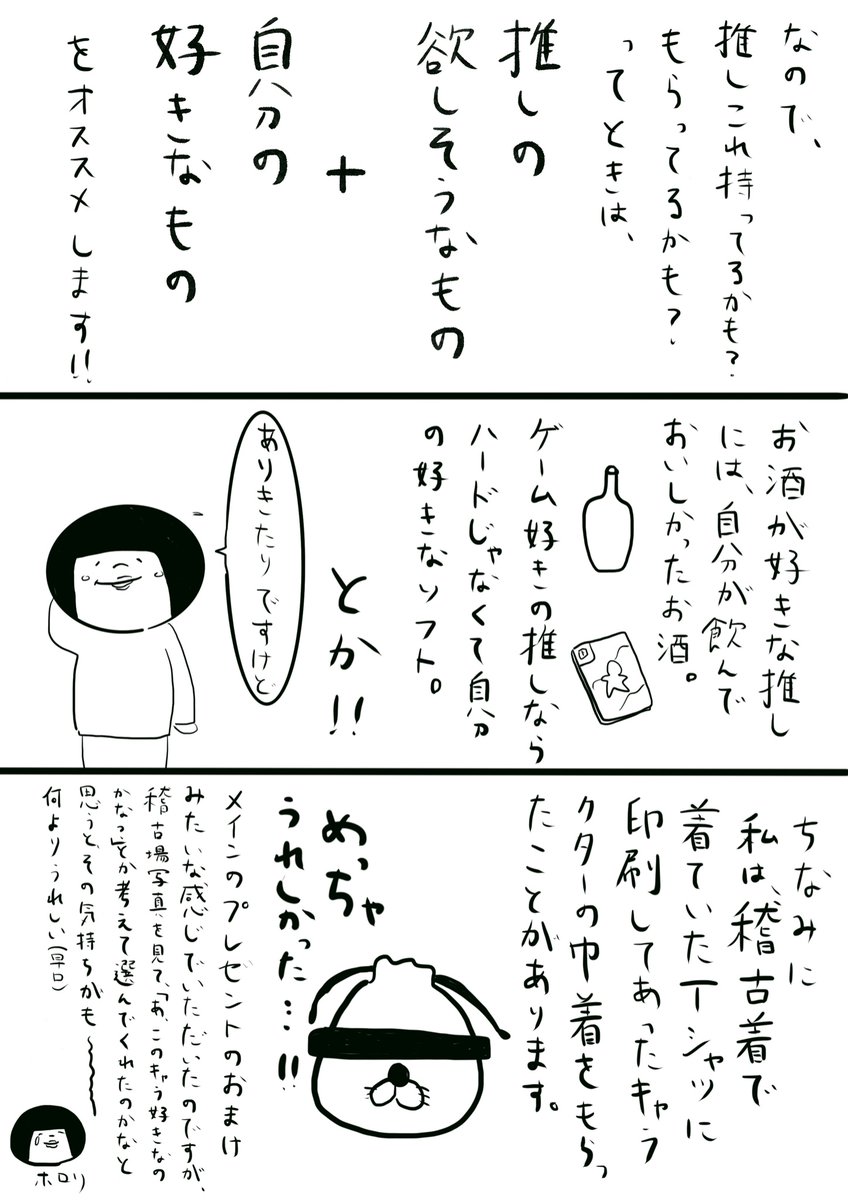 なので、
推しこれ持ってるかも？
もらってるかも？
ってときは、
推しの
欲しそうなもの
+
自分の
好きなもの
をオススメします!!
お酒が好きな推し
には、自分が飲んで
おいしかったお酒。
ゲーム好きの推しなら
ハードじゃなくて自分
の好きなソフト。
とか!!
ありきたりですけど
ちなみに
私は、稽古着で
着ていたTシャツに
印刷してあったキャラ
クターの巾着をもらっ
たことがあります。
めっちゃ
うれしかった…!!
メインのプレゼントのおまけ
みたいな感じでいただいたのですが、
稽古場写真を見て、「あ、このキャラ好きなの
かなっ」とか考えて選んでくれたのかなと
思うと、その気持ちがも〜〜〜〜
何よりうれしい(早口)
ホロリ